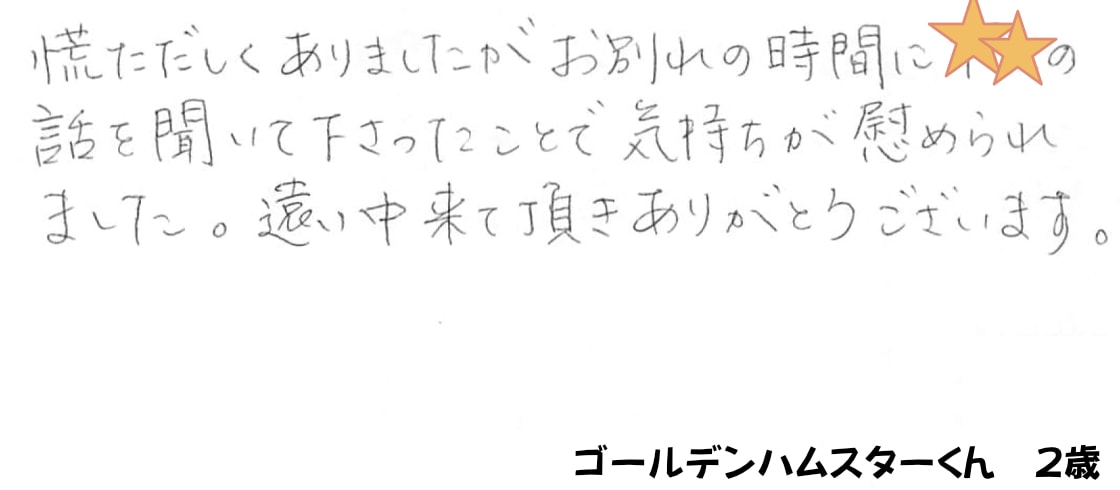 慌ただしくありましたがお別れの時間に の
話を聞いて下さったことで気持ちが慰められ
ました。遠い中来て頂きありがとうございます。
ゴールデンハムスターくん 2歳